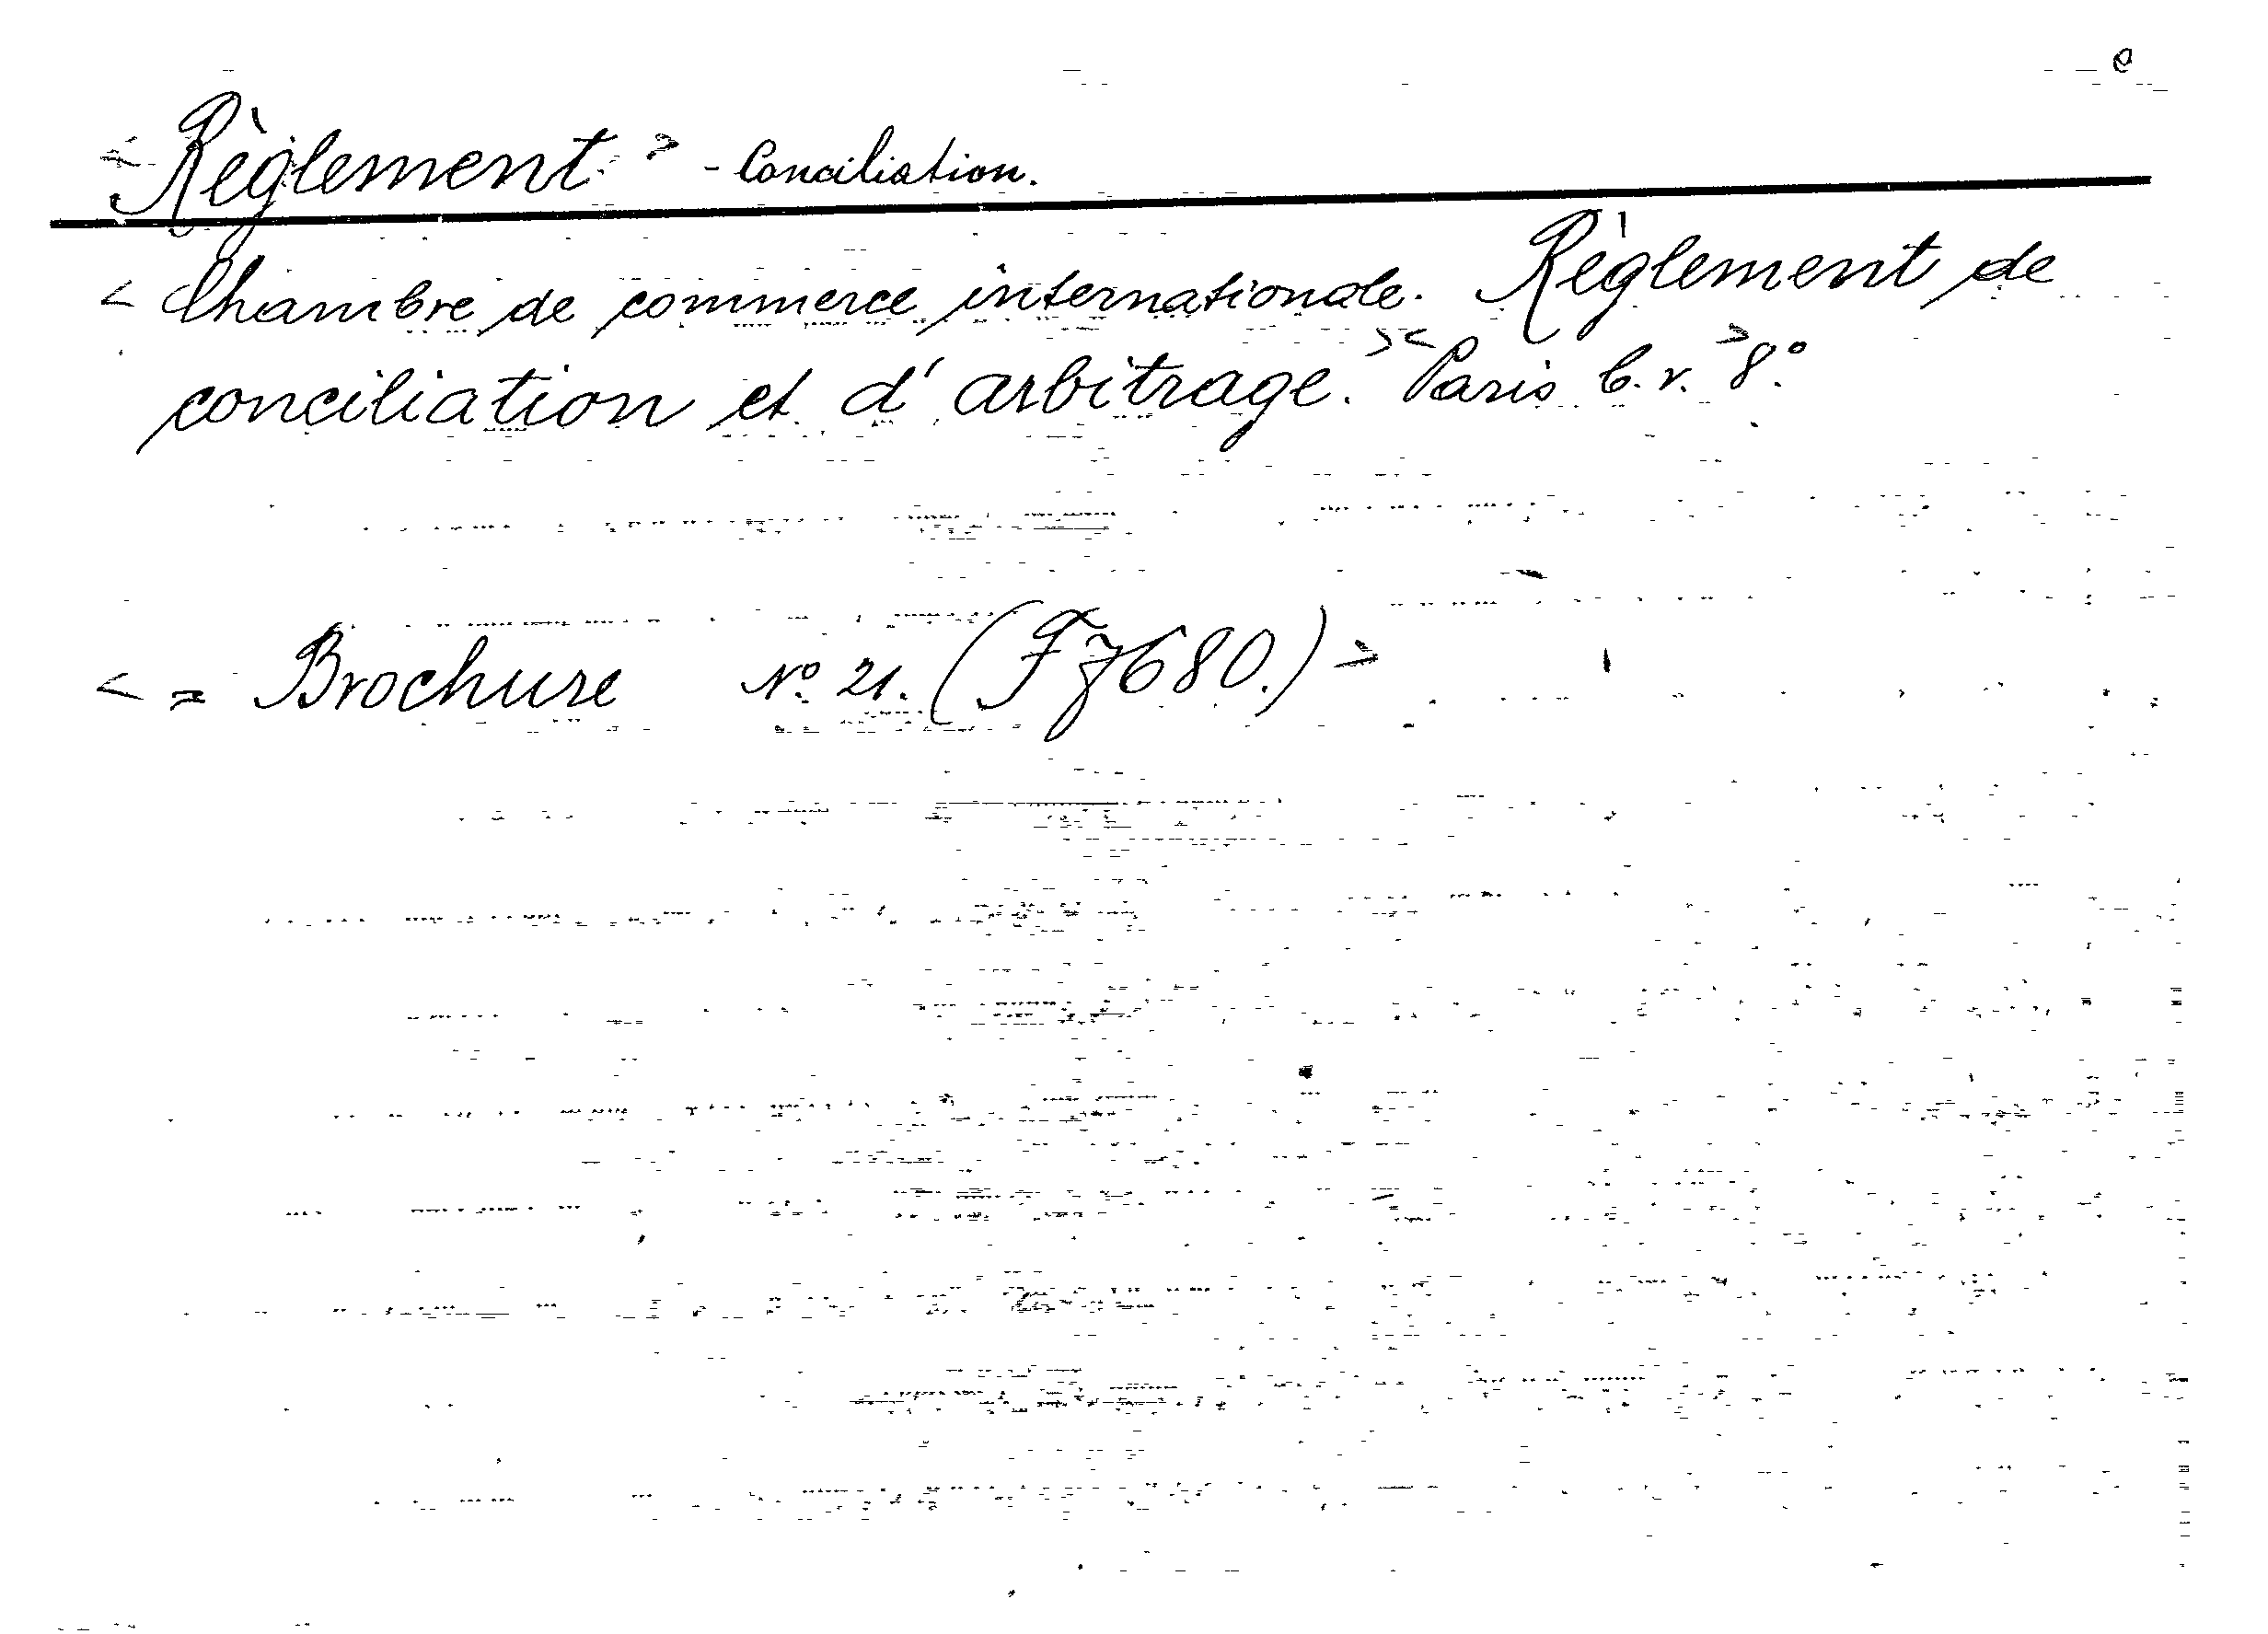 e
< Règlement. > - Conciliation.
< Chambre de commerce internationale. Règlement de
conciliation et d'arbitrage. >< Paris b. r. > 8°.
< = Brochure No. 21. (F7680.) >